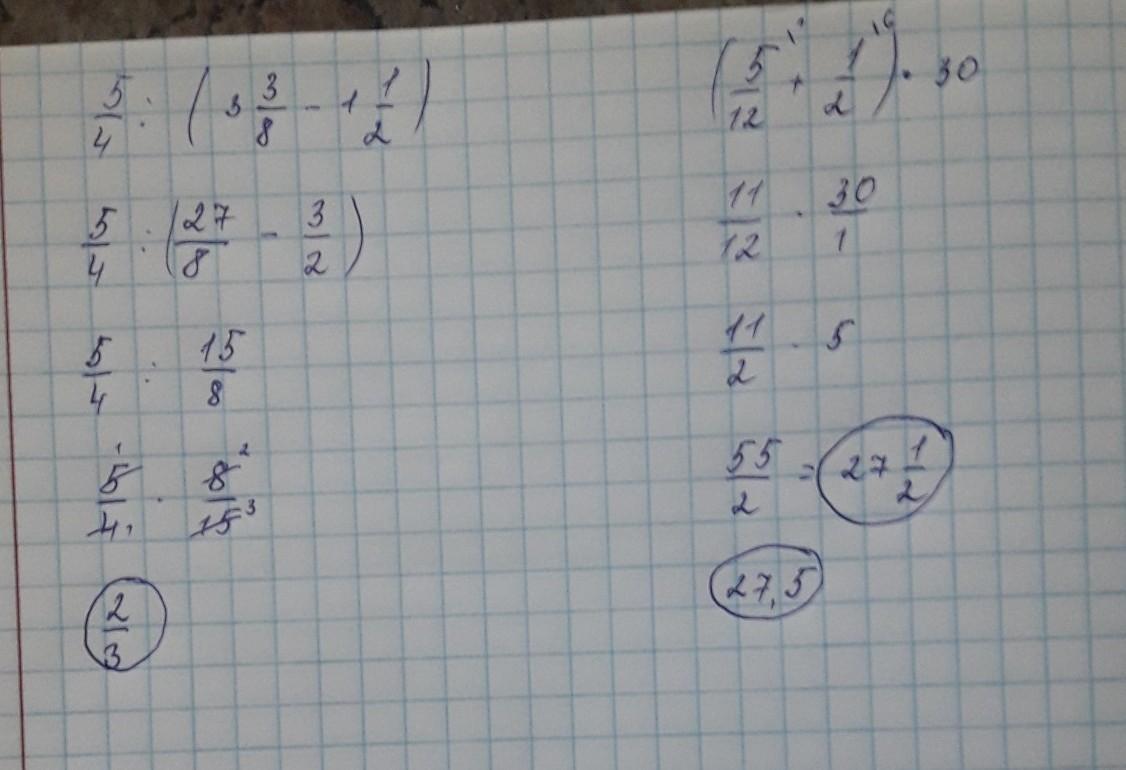 5/4 : (3 3/8 - 1 1/2)
5/4 : (27/8 - 3/2)
5/4 : 15/8
5¹/4₁ · 8²/15³
2/3
(5/12 + 1/2) · 30
11/12 · 30/1
11/2 · 5
55/2 = 27 1/2
27,5